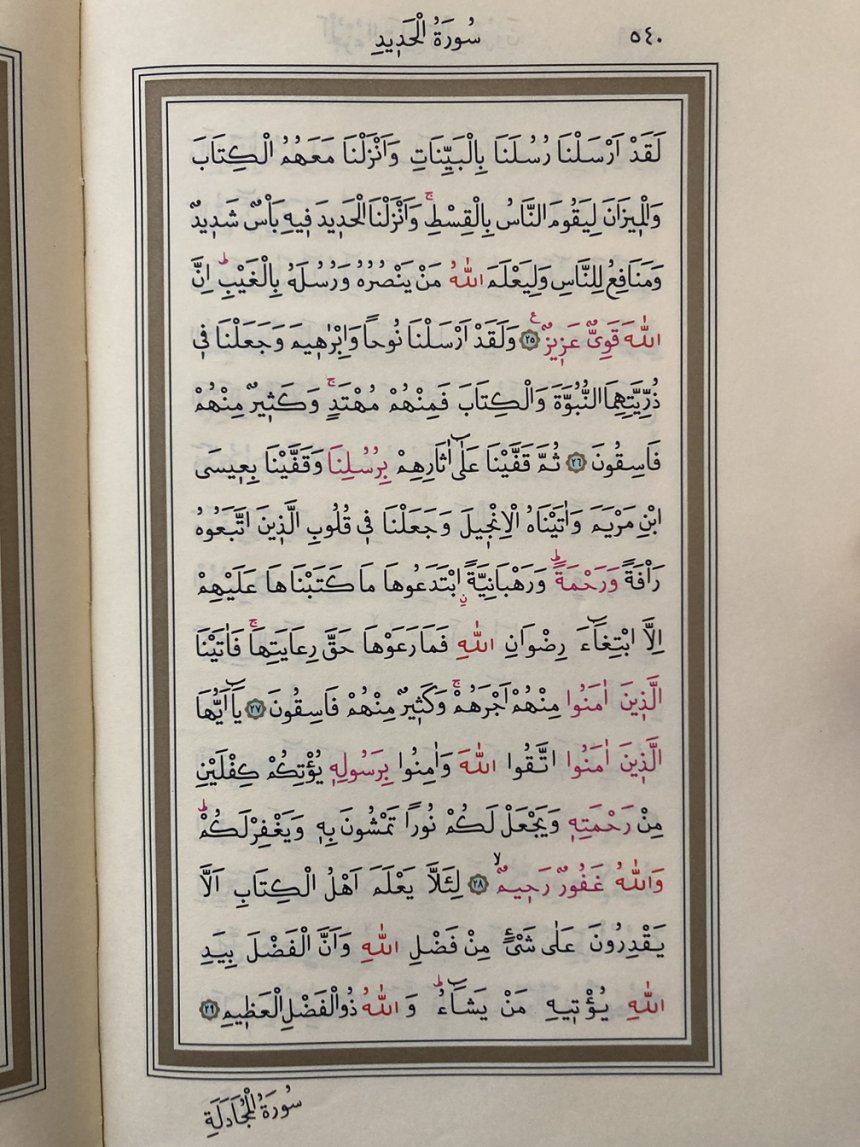 سُورَةُ الْحَدٖيدِ ٥٤٠
لَقَدْ اَرْسَلْنَا رُسُلَنَا بِالْبَيِّنَاتِ وَاَنْزَلْنَا مَعَهُمُ الْكِتَابَ
وَالْمٖيزَانَ لِيَقُومَ النَّاسُ بِالْقِسْطِۚ وَاَنْزَلْنَا الْحَدٖيدَ فٖيهِ بَاْسٌ شَدٖيدٌ
وَمَنَافِعُ لِلنَّاسِ وَلِيَعْلَمَ اللّٰهُ مَنْ يَنْصُرُهُ وَرُسُلَهُ بِالْغَيْبِؕ اِنَّ
اللّٰهَ قَوِىٌّ عَزٖيزٌࣖ ﴿٢٥﴾ وَلَقَدْ اَرْسَلْنَا نُوحاً وَاِبْرٰهٖيمَ وَجَعَلْنَا فٖى
ذُرِّيَّتِهِمَا النُّبُوَّةَ وَالْكِتَابَ فَمِنْهُمْ مُهْتَدٍۚ وَكَثٖيرٌ مِنْهُمْ
فَاسِقُونَ ﴿٢٦﴾ ثُمَّ قَفَّيْنَا عَلٰٓى اٰثَارِهِمْ بِرُسُلِنَا وَقَفَّيْنَا بِعٖيسَى
ابْنِ مَرْيَمَ وَاٰتَيْنَاهُ الْاِنْجٖيلَ وَجَعَلْنَا فٖى قُلُوبِ الَّذٖينَ اتَّبَعُوهُ
رَاْفَةً وَرَحْمَةًؕ وَرَهْبَانِيَّةًۨ ابْتَدَعُوهَا مَا كَتَبْنَاهَا عَلَيْهِمْ
اِلَّا ابْتِغَٓاءَ رِضْوَانِ اللّٰهِ فَمَا رَعَوْهَا حَقَّ رِعَايَتِهَاۚ فَاٰتَيْنَا
الَّذٖينَ اٰمَنُوا مِنْهُمْ اَجْرَهُمْۚ وَكَثٖيرٌ مِنْهُمْ فَاسِقُونَ ﴿٢٧﴾ يَٓا اَيُّهَا
الَّذٖينَ اٰمَنُوا اتَّقُوا اللّٰهَ وَاٰمِنُوا بِرَسُولِهٖ يُؤْتِكُمْ كِفْلَيْنِ
مِنْ رَحْمَتِهٖ وَيَجْعَلْ لَكُمْ نُوراً تَمْشُونَ بِهٖ وَيَغْفِرْ لَكُمْؕ
وَاللّٰهُ غَفُورٌ رَحٖيمٌۙ ﴿٢٨﴾ لِئَلَّا يَعْلَمَ اَهْلُ الْكِتَابِ اَلَّا
يَقْدِرُونَ عَلٰى شَىْءٍ مِنْ فَضْلِ اللّٰهِ وَاَنَّ الْفَضْلَ بِيَدِ
اللّٰهِ يُؤْتٖيهِ مَنْ يَشَٓاءُؕ وَاللّٰهُ ذُو الْفَضْلِ الْعَظٖيمِ ﴿٢٩﴾
سُورَةُ الْمُجَادَلَةِ